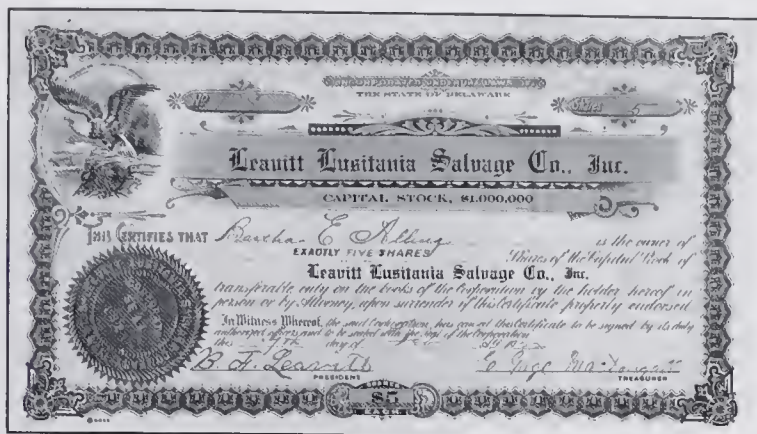 INCORPORATED UNDER THE LAWS OF
THE STATE OF DELAWARE
No
Shares 5
Leavitt Lusitania Salvage Co., Inc.
CAPITAL STOCK, $1,000,000
THIS CERTIFIES THAT Bertha E Alling is the owner of
EXACTLY FIVE SHARES Shares of the Capital Stock of
Leavitt Lusitania Salvage Co., Inc.
transferable only on the books of the Corporation by the holder hereof in
person or by Attorney, upon surrender of this Certificate properly endorsed
In Witness Whereof, the said Corporation has caused this Certificate to be signed by its duly
authorized officers and to be sealed with the Seal of the Corporation
this day of A.D.
B. F. Leavitt
PRESIDENT
TREASURER
SHARES
$5
EACH